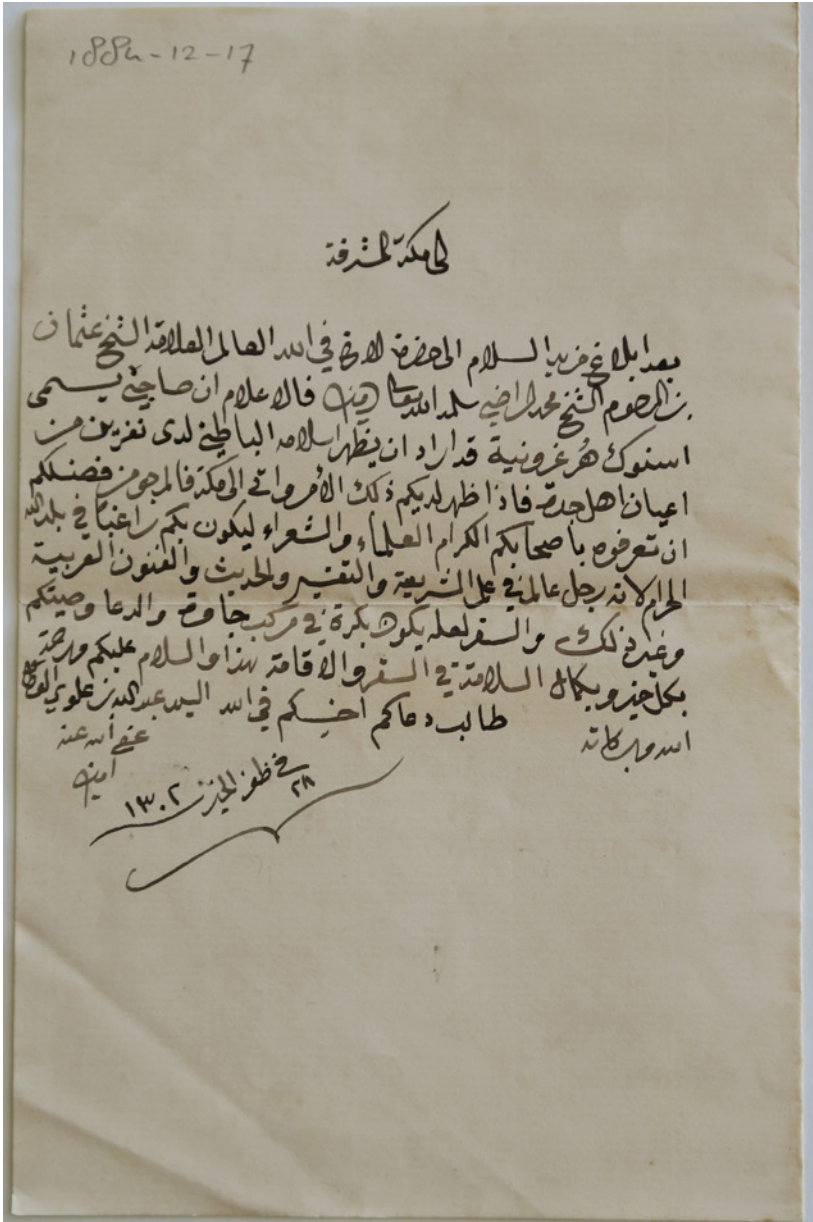 1884-12-17
الى مكة المشرفة
بعد ابلاغ مزيد السلام الى حضرة الاخ في الله العالم العلامة الشيخ عثمان
بن المرحوم الشيخ محمد الراضي سلمه الله تعالى امين فالاعلام ان صاحبي يسمى
اسنوك هُرغرونية قد اراد ان يظهر اسلامه الباطني لدى نفرين من
اعيان اهل جدة فاذا ظهر لديكم ذلك الأمر واتى الى مكة فالمرجو من فضلكم
ان تعرفوه باصحابكم الكرام العلماء والشعراء ليكون بكم راغبًا في بلد الله
الحرام لانه رجل عالم في علم الشريعة والتفسير والحديث والفنون العربية
وغير ذلك والسفر لعله يكون بكرة في مركب جاوة والدعا وصيتكم
بكل خير وبكمال السلامة في السفر والاقامة هذا والسلام عليكم ورحمة
الله وبركاته طالب دعاكم اخيكم في الله السيد عبدالله بن علوي
عفى الله عنه
امين
في ٢٨ ظفر الخير سنة ١٣٠٢